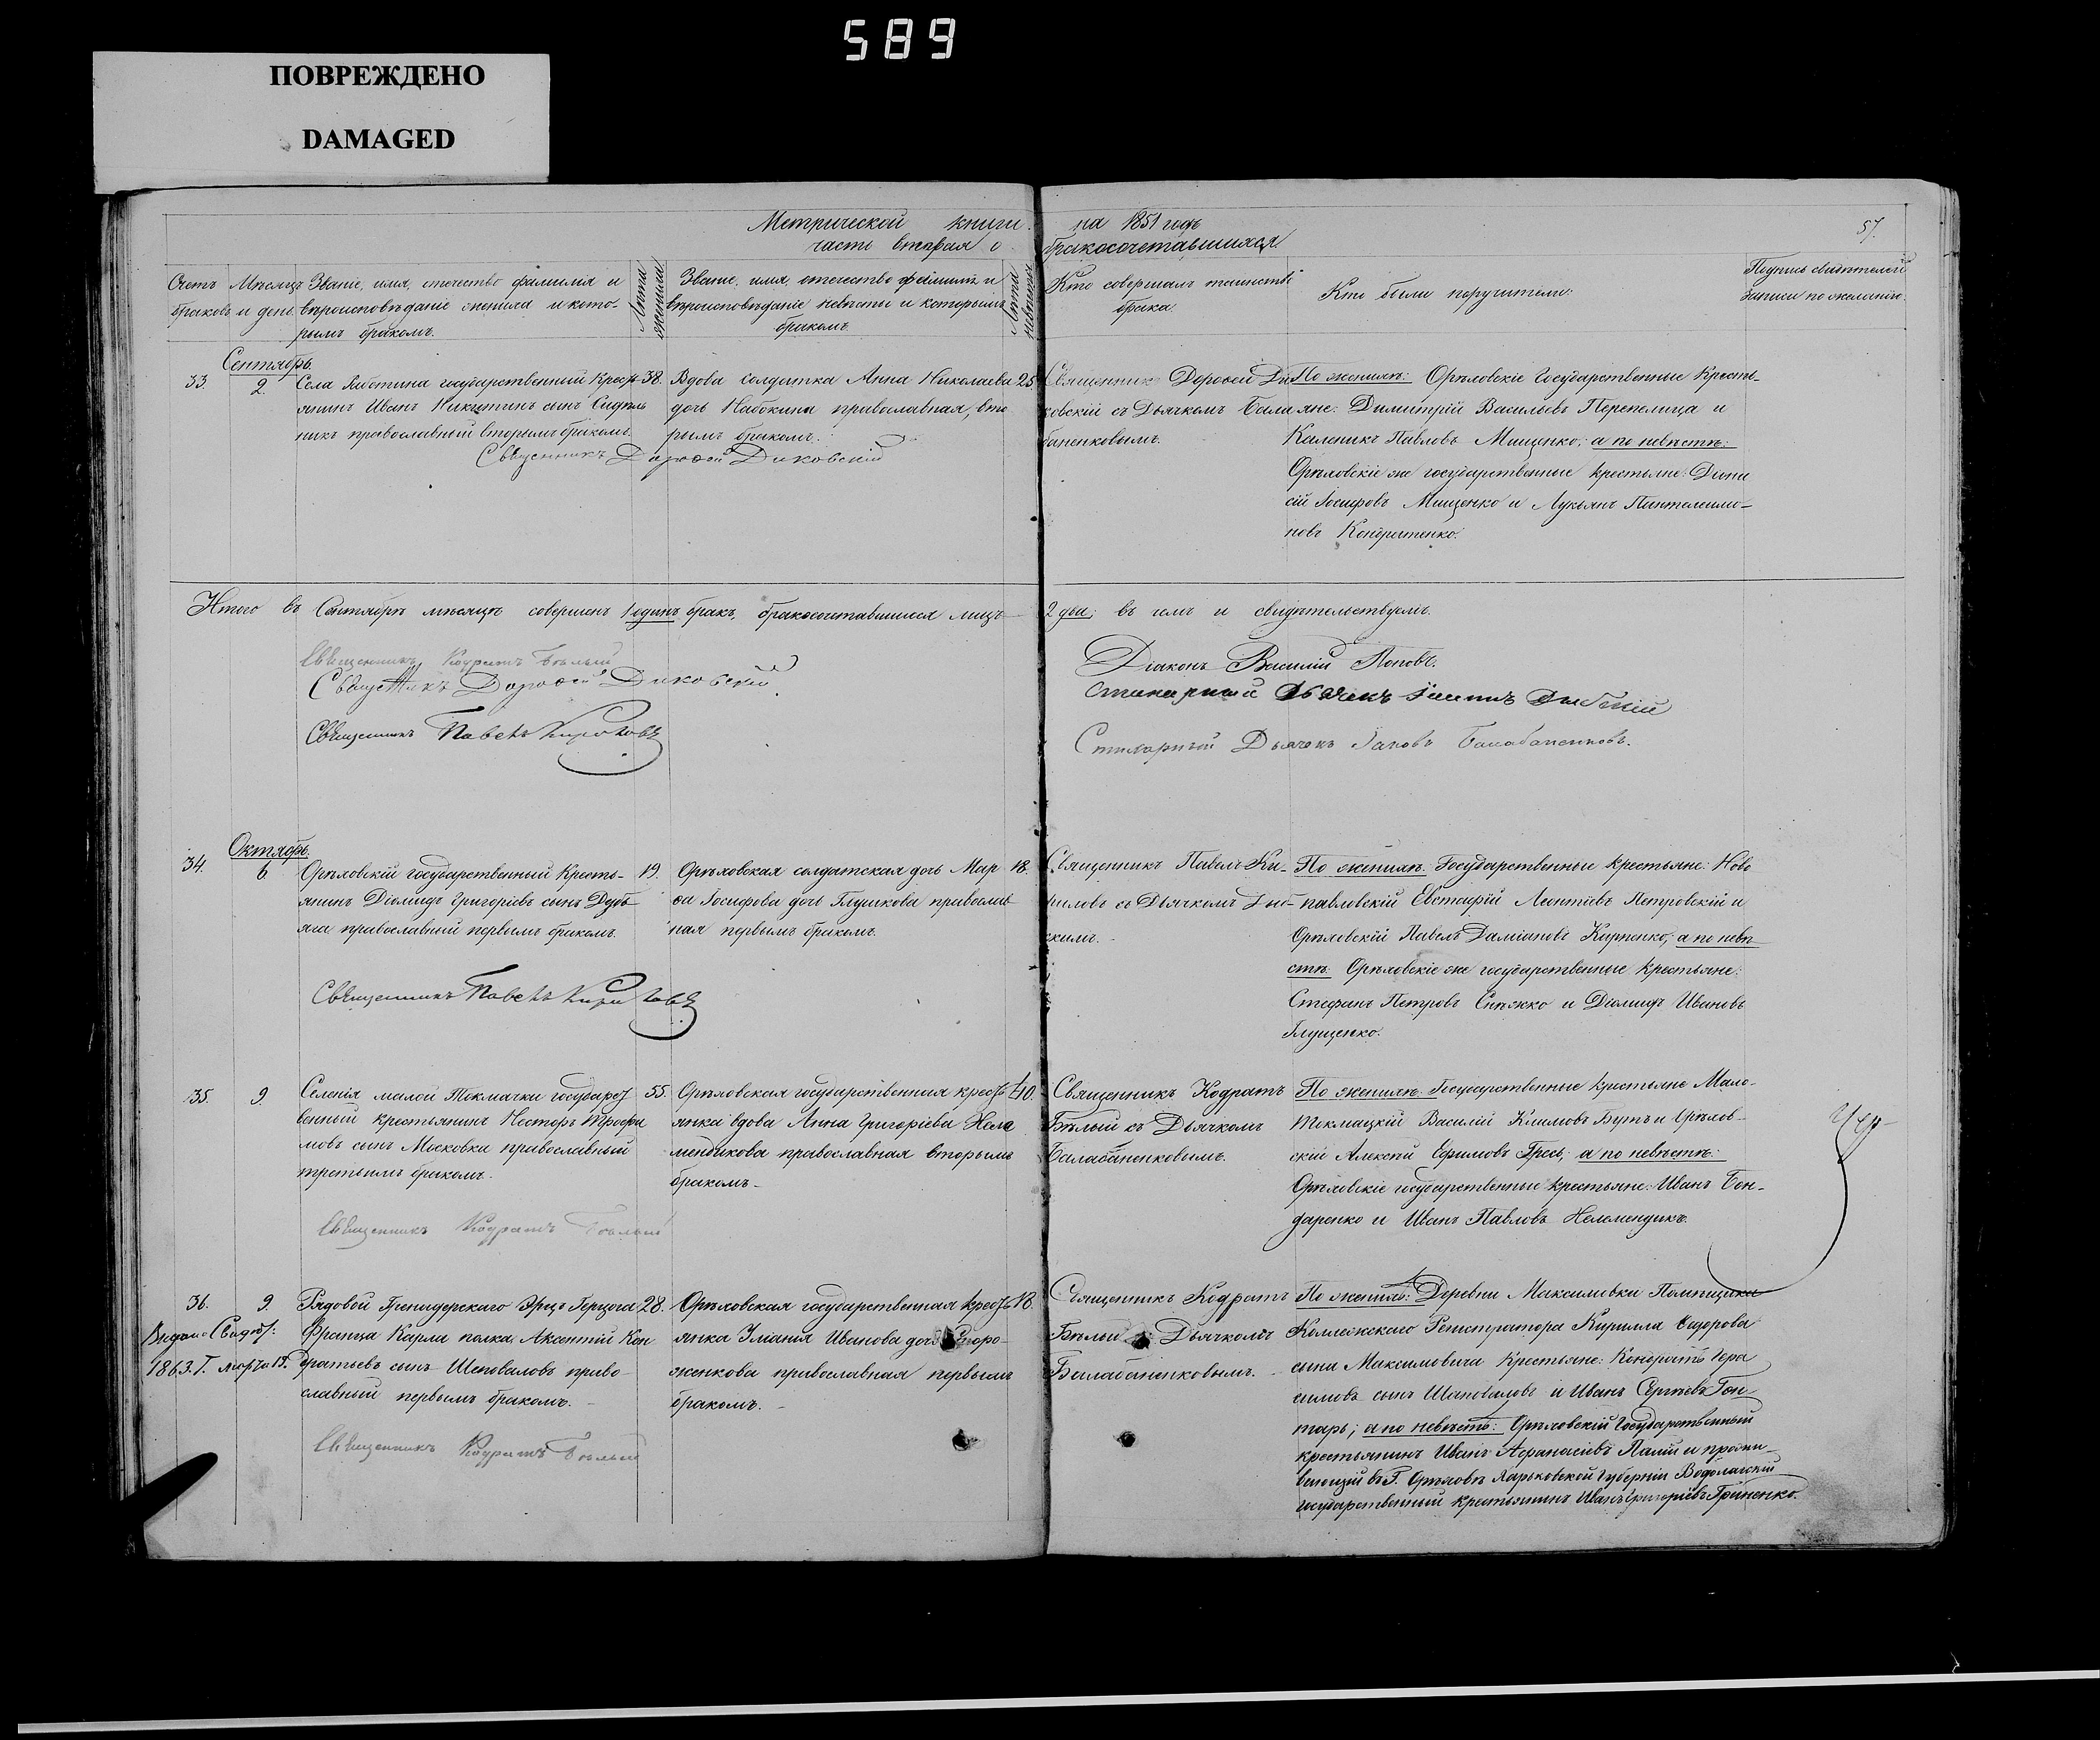 589
ПОВРЕЖДЕНО
DAMAGED
Метрической книги на 1851 годъ 57.
часть вторая о бракосочетавшихся
Счетъ браковъ
Мѣсяцъ и день
Званіе, имя, отчество фамилія и
вѣроисповѣданіе жениха и кото-
рымъ бракомъ.
Лѣта жениха
Званіе, имя, отчество фамилія и
вѣроисповѣданіе невѣсты и которымъ
бракомъ
Лѣта невѣсты
Кто совершалъ таинство
брака.
Кто были поручители:
Подпись свидѣтелей
записи по желанію.
Сентябрь.
33. 2.
Села государственный крест-
янинъ Иванъ Никитинъ сынъ
никъ православный вторымъ бракомъ.
38.
Вдова солдатка Анна Николаева
дочь Набокина православная, вто
рымъ бракомъ.
25.
Священникъ Дорофей Ди
ковскій съ Дьячкомъ Бала
баненковымъ.
По женихѣ: Орѣховскіе Государственные Кресть-
яне: Димитрій Васильевъ Перепелица и
Каленикъ Павловъ Мищенко; а по невѣстѣ:
Орѣховскіе же государственные крестьяне: Діони
сій Іосифовъ Мищенко и Лукьянъ Пантелеимо-
новъ Кондратенко.
Священникъ Дорофей Диковскій
Итого въ Сентябрѣ мѣсяцѣ совершенъ 1 одинъ бракъ, бракосочетавшихся лицъ 2 два; въ чемъ и свидѣтельствуемъ.
Священникъ Кодратъ Бѣлый
Священникъ Дорофей Диковскій
Священникъ Павелъ Кириловъ
Діаконъ Василій Поповъ.
Стихарный Дьячекъ
Стихарный Дьячекъ Іаковъ Балабаненковъ.
Октябрь.
34. 6.
Орѣховскій государственный Кресть-
янинъ Діомидъ Григоріевъ сынъ Дубь
яга православный первымъ бракомъ.
19.
Орѣховская солдатская дочь Мар
ѳа Іосифова дочь Глушкова православ
ная первымъ бракомъ.
18.
Священникъ Павелъ Ки-
риловъ съ Дьячкомъ
скимъ.
По женихѣ: Государственные крестьяне: Ново
павловскій Евстафій Леонтіевъ Петровскій и
Орѣховскій Павелъ Даміановъ Карпенко; а по невѣ
стѣ: Орѣховскіе же государственные крестьяне:
Стефанъ Петровъ Снѣжко и Діомидъ Ивановъ
Глущенко.
Священникъ Павелъ Кириловъ
35. 9.
Селенія малой Токмачки государст
венный крестьянинъ Несторъ Трофи
мовъ сынъ Московка православный
третьимъ бракомъ.
55.
Орѣховская государственная кресть
янка вдова Анна Григоріева Неле
мендикова православная вторымъ
бракомъ.
40.
Священникъ Кодратъ
Бѣлый съ Дьячкомъ
Балабаненковымъ.
По женихѣ: Государственные крестьяне Мало-
токмацкій Василій Климовъ Бутъ и Орѣхов-
скій Алексѣй Ефимовъ Гресь; а по невѣстѣ:
Орѣховскіе государственные крестьяне: Иванъ Бон-
даренко и Иванъ Павловъ Нелемендикъ.
Священникъ Кодратъ Бѣлый
36. 9.
Видано Свидѣт:
1863. Г. марта 15.
Рядовой Гренадерскаго Эрцъ Герцога
Франца Карла полка, Аксентій Кон
дратьевъ сынъ Шаповаловъ право
славный первымъ бракомъ.
28.
Орѣховская государственная крест
янка Уліанія Иванова дочь
женкова православная первымъ
бракомъ.
18.
Священникъ Кодратъ
Бѣлый съ Дьячкомъ
Балабаненковымъ.
По женихѣ: Деревни Максимовки Помѣщика
Коллежскаго Регистратора Кирилла Ѳедорова
сына Максимовича крестьяне: Кондратъ Гера
симовъ сынъ Шаповаловъ и Иванъ Сергѣевъ Гон
таръ; а по невѣстѣ: Орѣховскій Государственный
крестьянинъ Иванъ Афанасіевъ Палій и прожи-
вающій въ Г. Орѣховѣ Харьковской Губерніи Водолажскій
государственный крестьянинъ Иванъ Григоріевъ Гриненко.
Священникъ Кодратъ Бѣлый